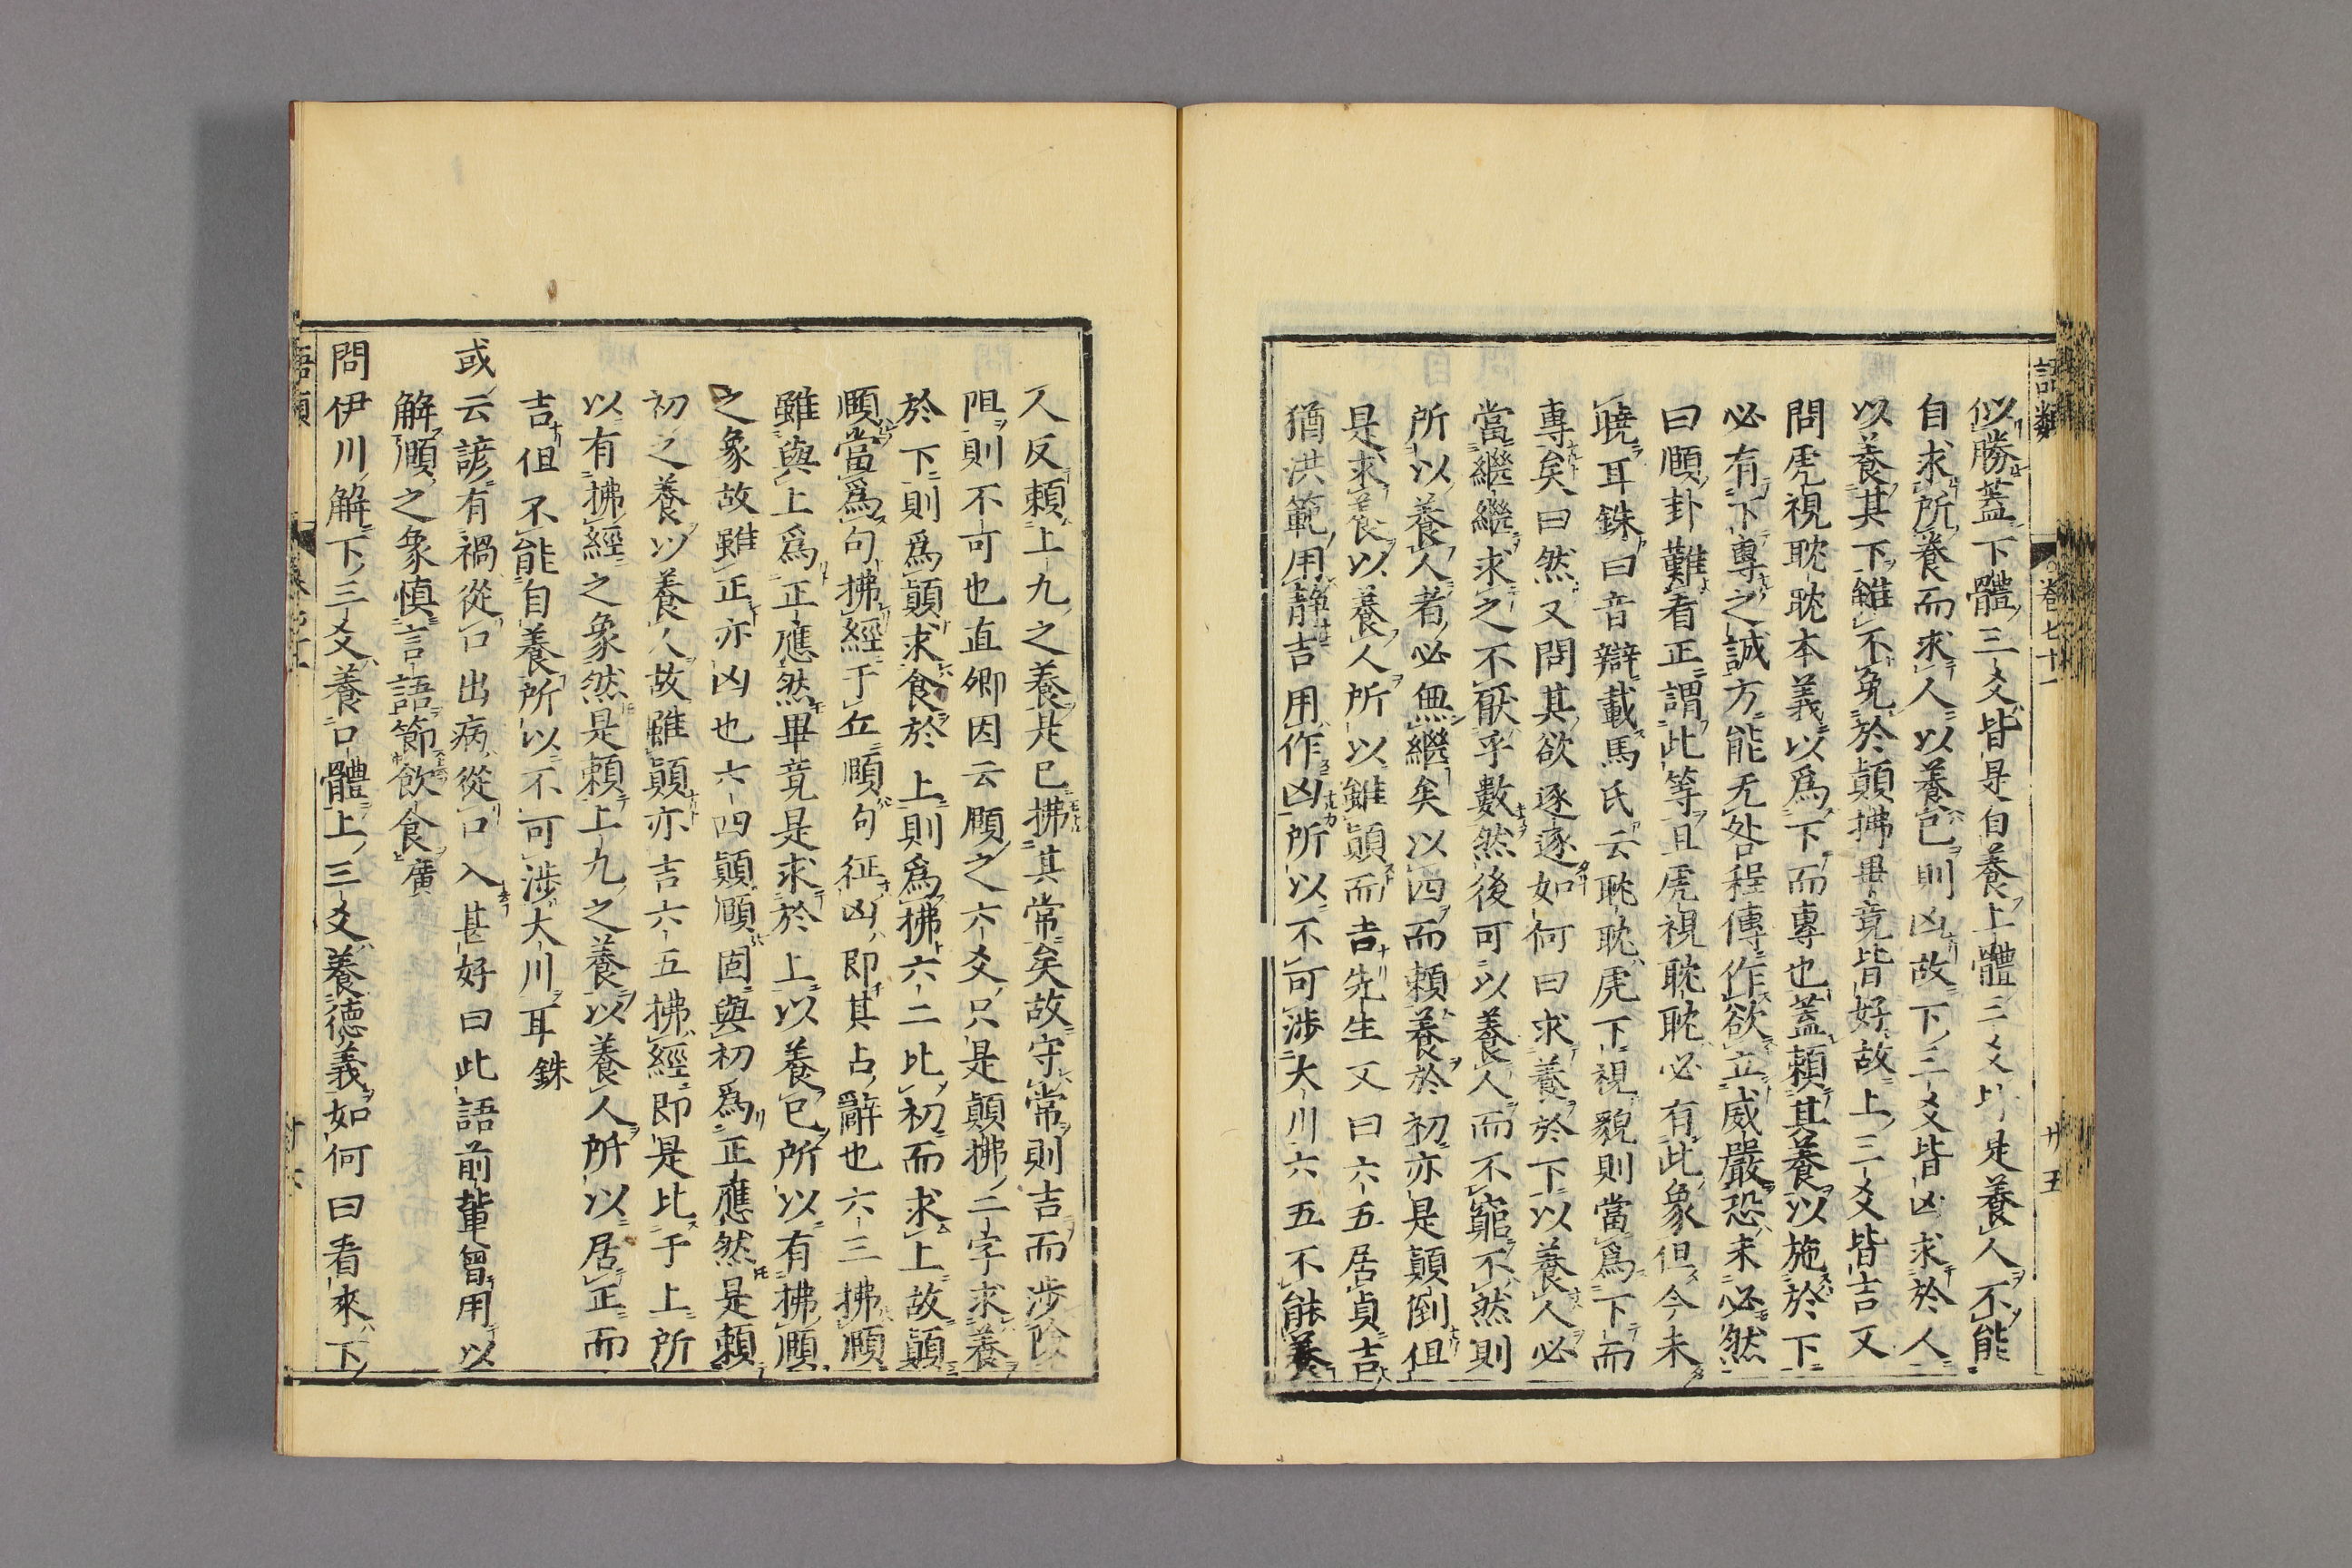 語類　卷七十一　廿五
以勝蓋下體三爻皆是自養上體三爻皆是養人不能
自求所養而求人以養已則凶故下三爻皆凶求於人
以養其下雖不免於顛拂畢竟皆好故上三爻皆吉又
問虎視耽耽本義以爲下而專也蓋賴其養以施於下
必有下專之誠方能无咎程傳作欲立威嚴恐未必然
曰頤卦難看正謂此等且虎視耽耽必有此象但今未
曉耳銖曰音辯載馬氏云耽耽虎下視貌則當爲下而
專矣曰然又問其欲逐逐如何曰求養於下以養人必
當繼繼求之不厭乎數然後可以養人而不窮不然則
所以養人者必無繼矣以四而賴養於初亦是顛倒但
是求養以養人所以雖顛而吉先生又曰六五居貞吉
猶洪範用靜吉用作凶所以不可渉大川六五不能養
人反賴上九之養是已拂其常矣故守常則吉而渉險
阻則不可也直卿因云頤之六爻只是顛拂二字求養
於下則爲顛求食於上則爲拂六二比初而求上故顛
頤當爲句拂經于丘頤句征凶即其占辭也六三拂頤
雖與上爲正應然畢竟是求於上以養已所以有拂頤
之象故雖正亦凶也六四顛頤固與初爲正應然是賴
初之養以養人故雖顛亦吉六五拂經即是比于上所
以有拂經之象然是賴上九之養以養人所以居正而
吉但不能自養所以不可渉大川耳銖
或云諺有禍從口出病從口入甚好曰此語前輩曾用以
解頤之象慎言語節飲食廣
問伊川解下三爻養口體上三爻養德義如何曰看來下
語類